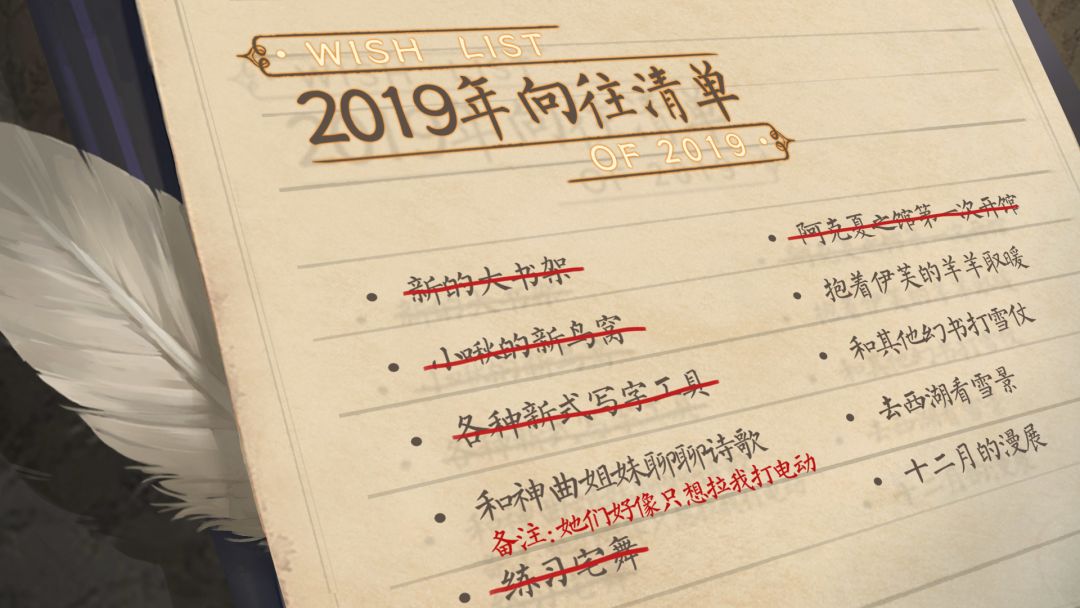 WISH LIST
2019年向往清单
OF 2019
新的大书架
小啾的新鸟窝
各种新式写字工具
和神曲姐妹聊聊诗歌
备注:她们好像只想拉我打电动
练习宅舞
阿克夏之馆第一次开馆
抱着伊芙的羊羊取暖
和其他幻书打雪仗
去西湖看雪景
十二月的漫展